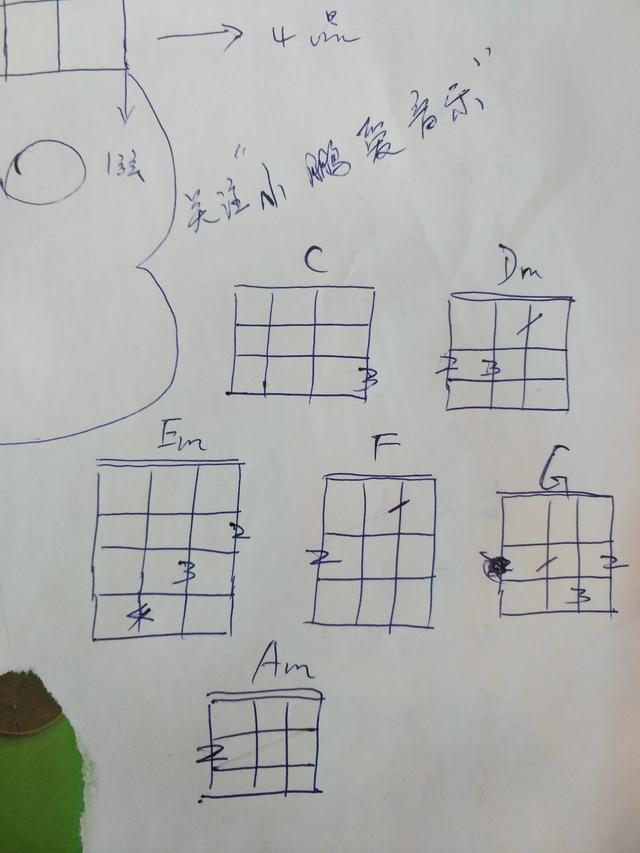 4品
1弦
关注“小鹏爱音乐”
C
Dm
3
2 3
Em
F
G
2
3
4
2
2 2
3
Am
2